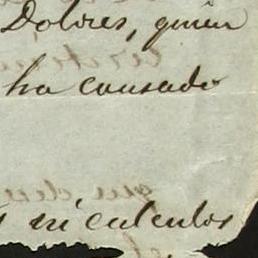 Dolores, quien
ha causado
ni calculos